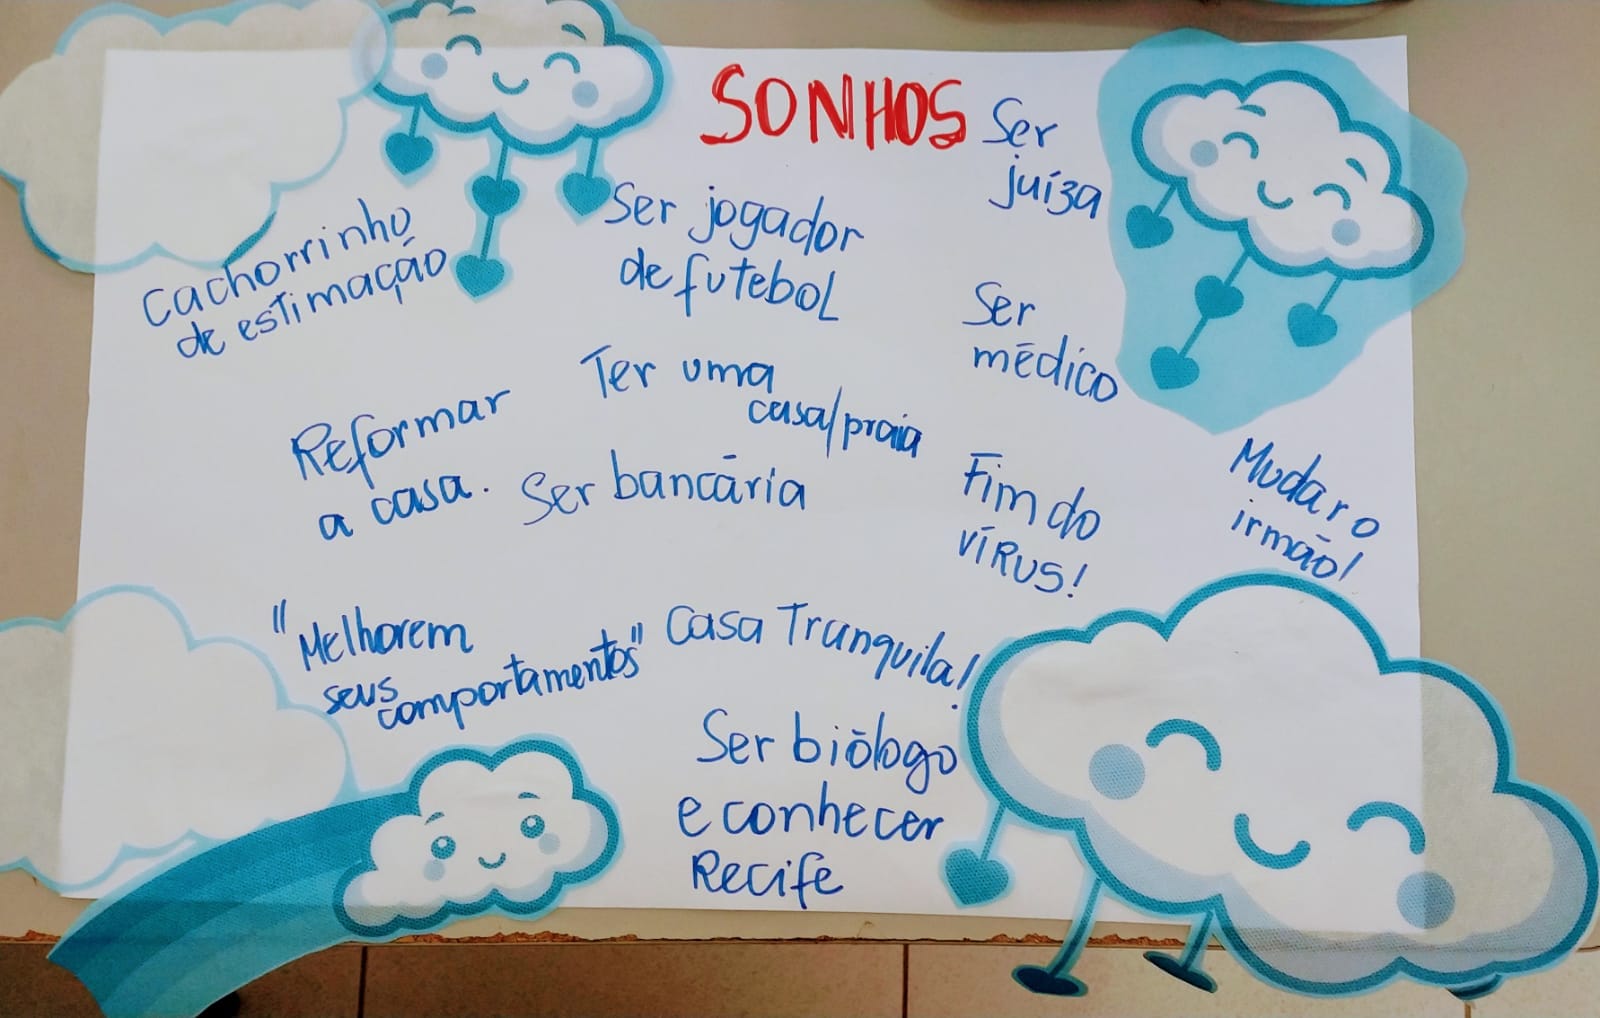 SONHOS
Ser
juíza
Cachorrinho
de estimação
Ser jogador
de futebol
Ser
médico
Reformar
a casa.
Ter uma
casa/praia
Ser bancária
Fim do
VÍRUS!
Mudar o
irmão!
"Melhorem
seus
comportamentos"
Casa Tranquila!
Ser biólogo
e conhecer
Recife